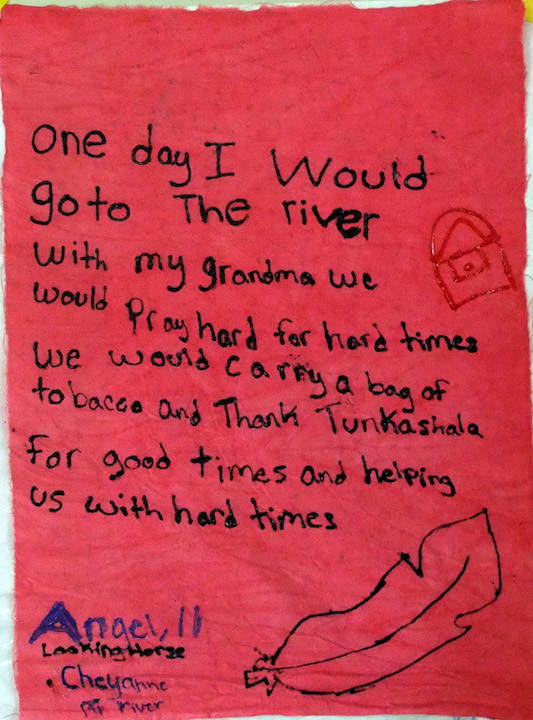 One day I Would
go to The river
With my grandma we
would Pray hard for hard times
we would carry a bag of
tobacco and Thank Tunkashala
For good times and helping
us with hard times
Angel, 11
Looking Horse
. Cheyanne
river